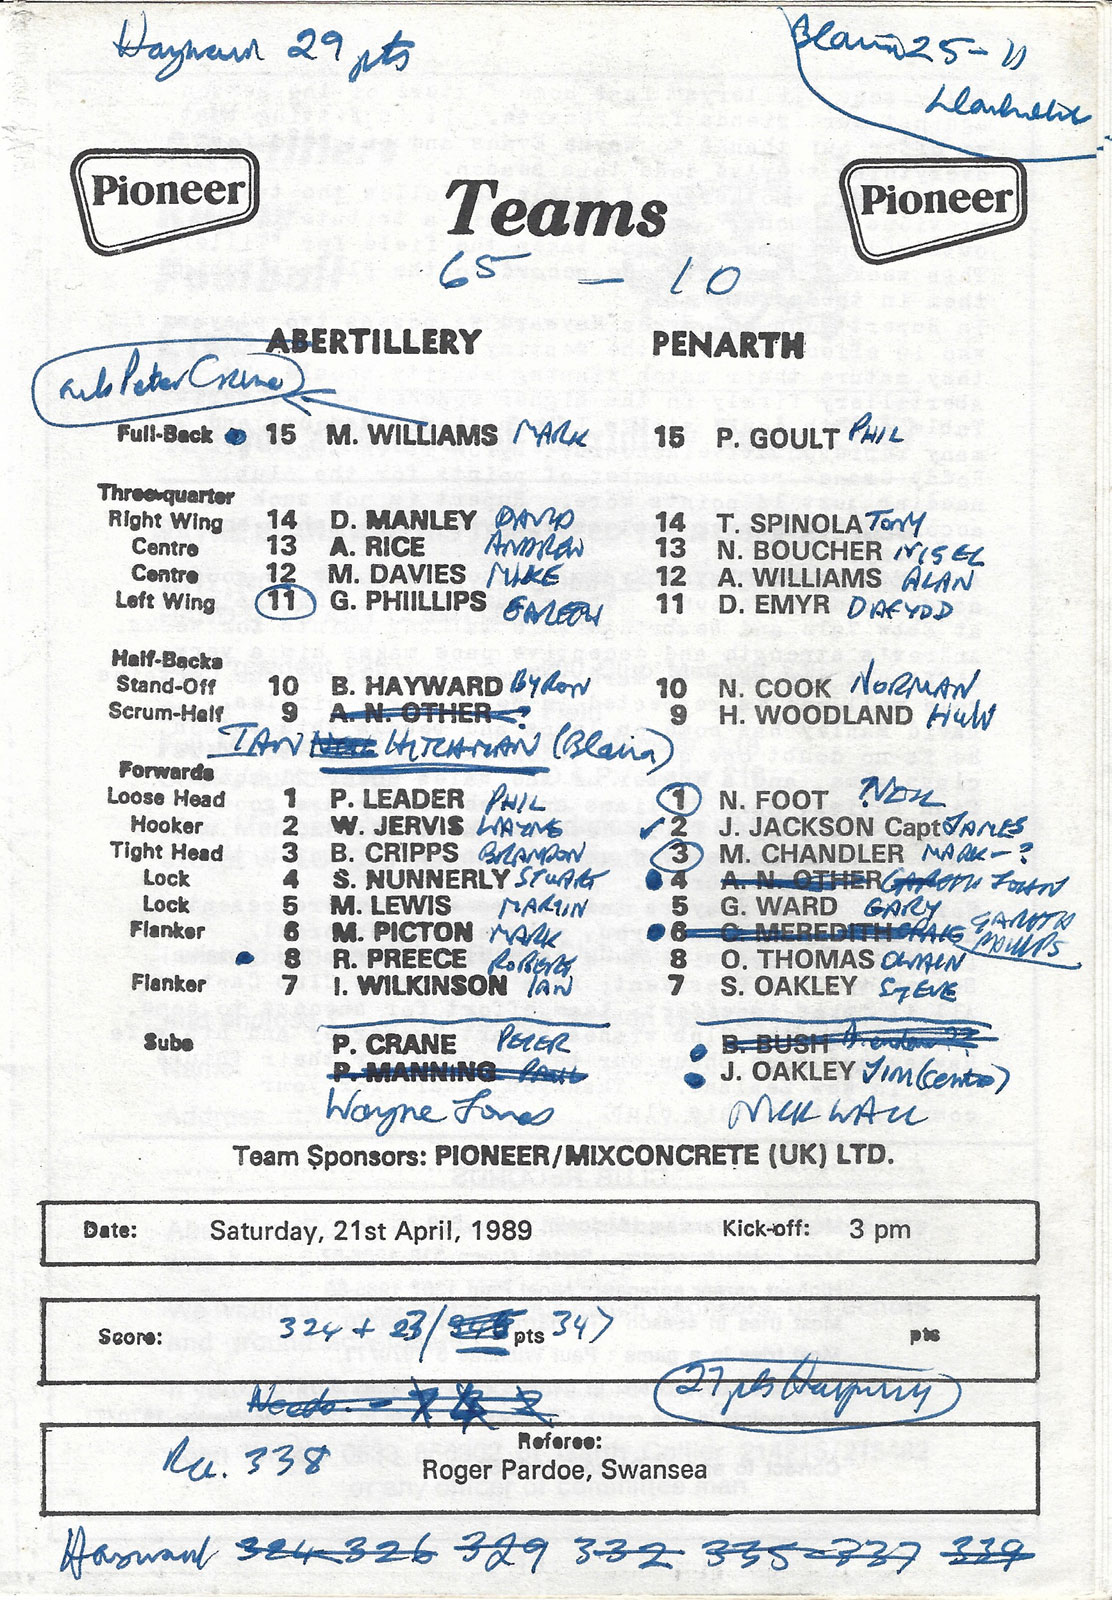 Hayward 29 pts
Blaina 25-11
Pioneer
Pioneer
Teams
65 - 10
ABERTILLERY PENARTH
sub Peter Crane
Full-Back 15 M. WILLIAMS MARK 15 P. GOULT PHIL
Three-quarter
Right Wing 14 D. MANLEY DAVID 14 T. SPINOLA TONY
Centre 13 A. RICE ANDREW 13 N. BOUCHER NIGEL
Centre 12 M. DAVIES MIKE 12 A. WILLIAMS ALAN
Left Wing 11 G. PHIILLIPS GARETH 11 D. EMYR DAFYDD
Half-Backs
Stand-Off 10 B. HAYWARD BYRON 10 N. COOK NORMAN
Scrum-Half 9 A. N. OTHER ? 9 H. WOODLAND HUW
IAN HITCHMAN (Blaina)
Forwards
Loose Head 1 P. LEADER PHIL 1 N. FOOT ?NEIL
Hooker 2 W. JERVIS WAYNE 2 J. JACKSON Capt JAMES
Tight Head 3 B. CRIPPS BRANDON 3 M. CHANDLER MARK - ?
Lock 4 S. NUNNERLY STUART 4 A. N. OTHER GARETH JOHN
Lock 5 M. LEWIS MARTIN 5 G. WARD GARY
Flanker 6 M. PICTON MARK 6 C. MEREDITH CRAIG GARETH PHILLIPS
8 R. PREECE ROBERT 8 O. THOMAS OWAIN
Flanker 7 I. WILKINSON IAN 7 S. OAKLEY STEVE
Subs P. CRANE PETER B. BUSH
P. MANNING PAUL J. OAKLEY JIM (centre)
Wayne Jones NICK WALL
Team Sponsors: PIONEER/MIXCONCRETE (UK) LTD.
Date: Saturday, 21st April, 1989 Kick-off: 3 pm
Score: 324 + 23/ pts 347 pts
Needs -
27 pts
Referee:
Rec. 338
Roger Pardoe, Swansea
Hayward 324 326 329 332 335 337 339